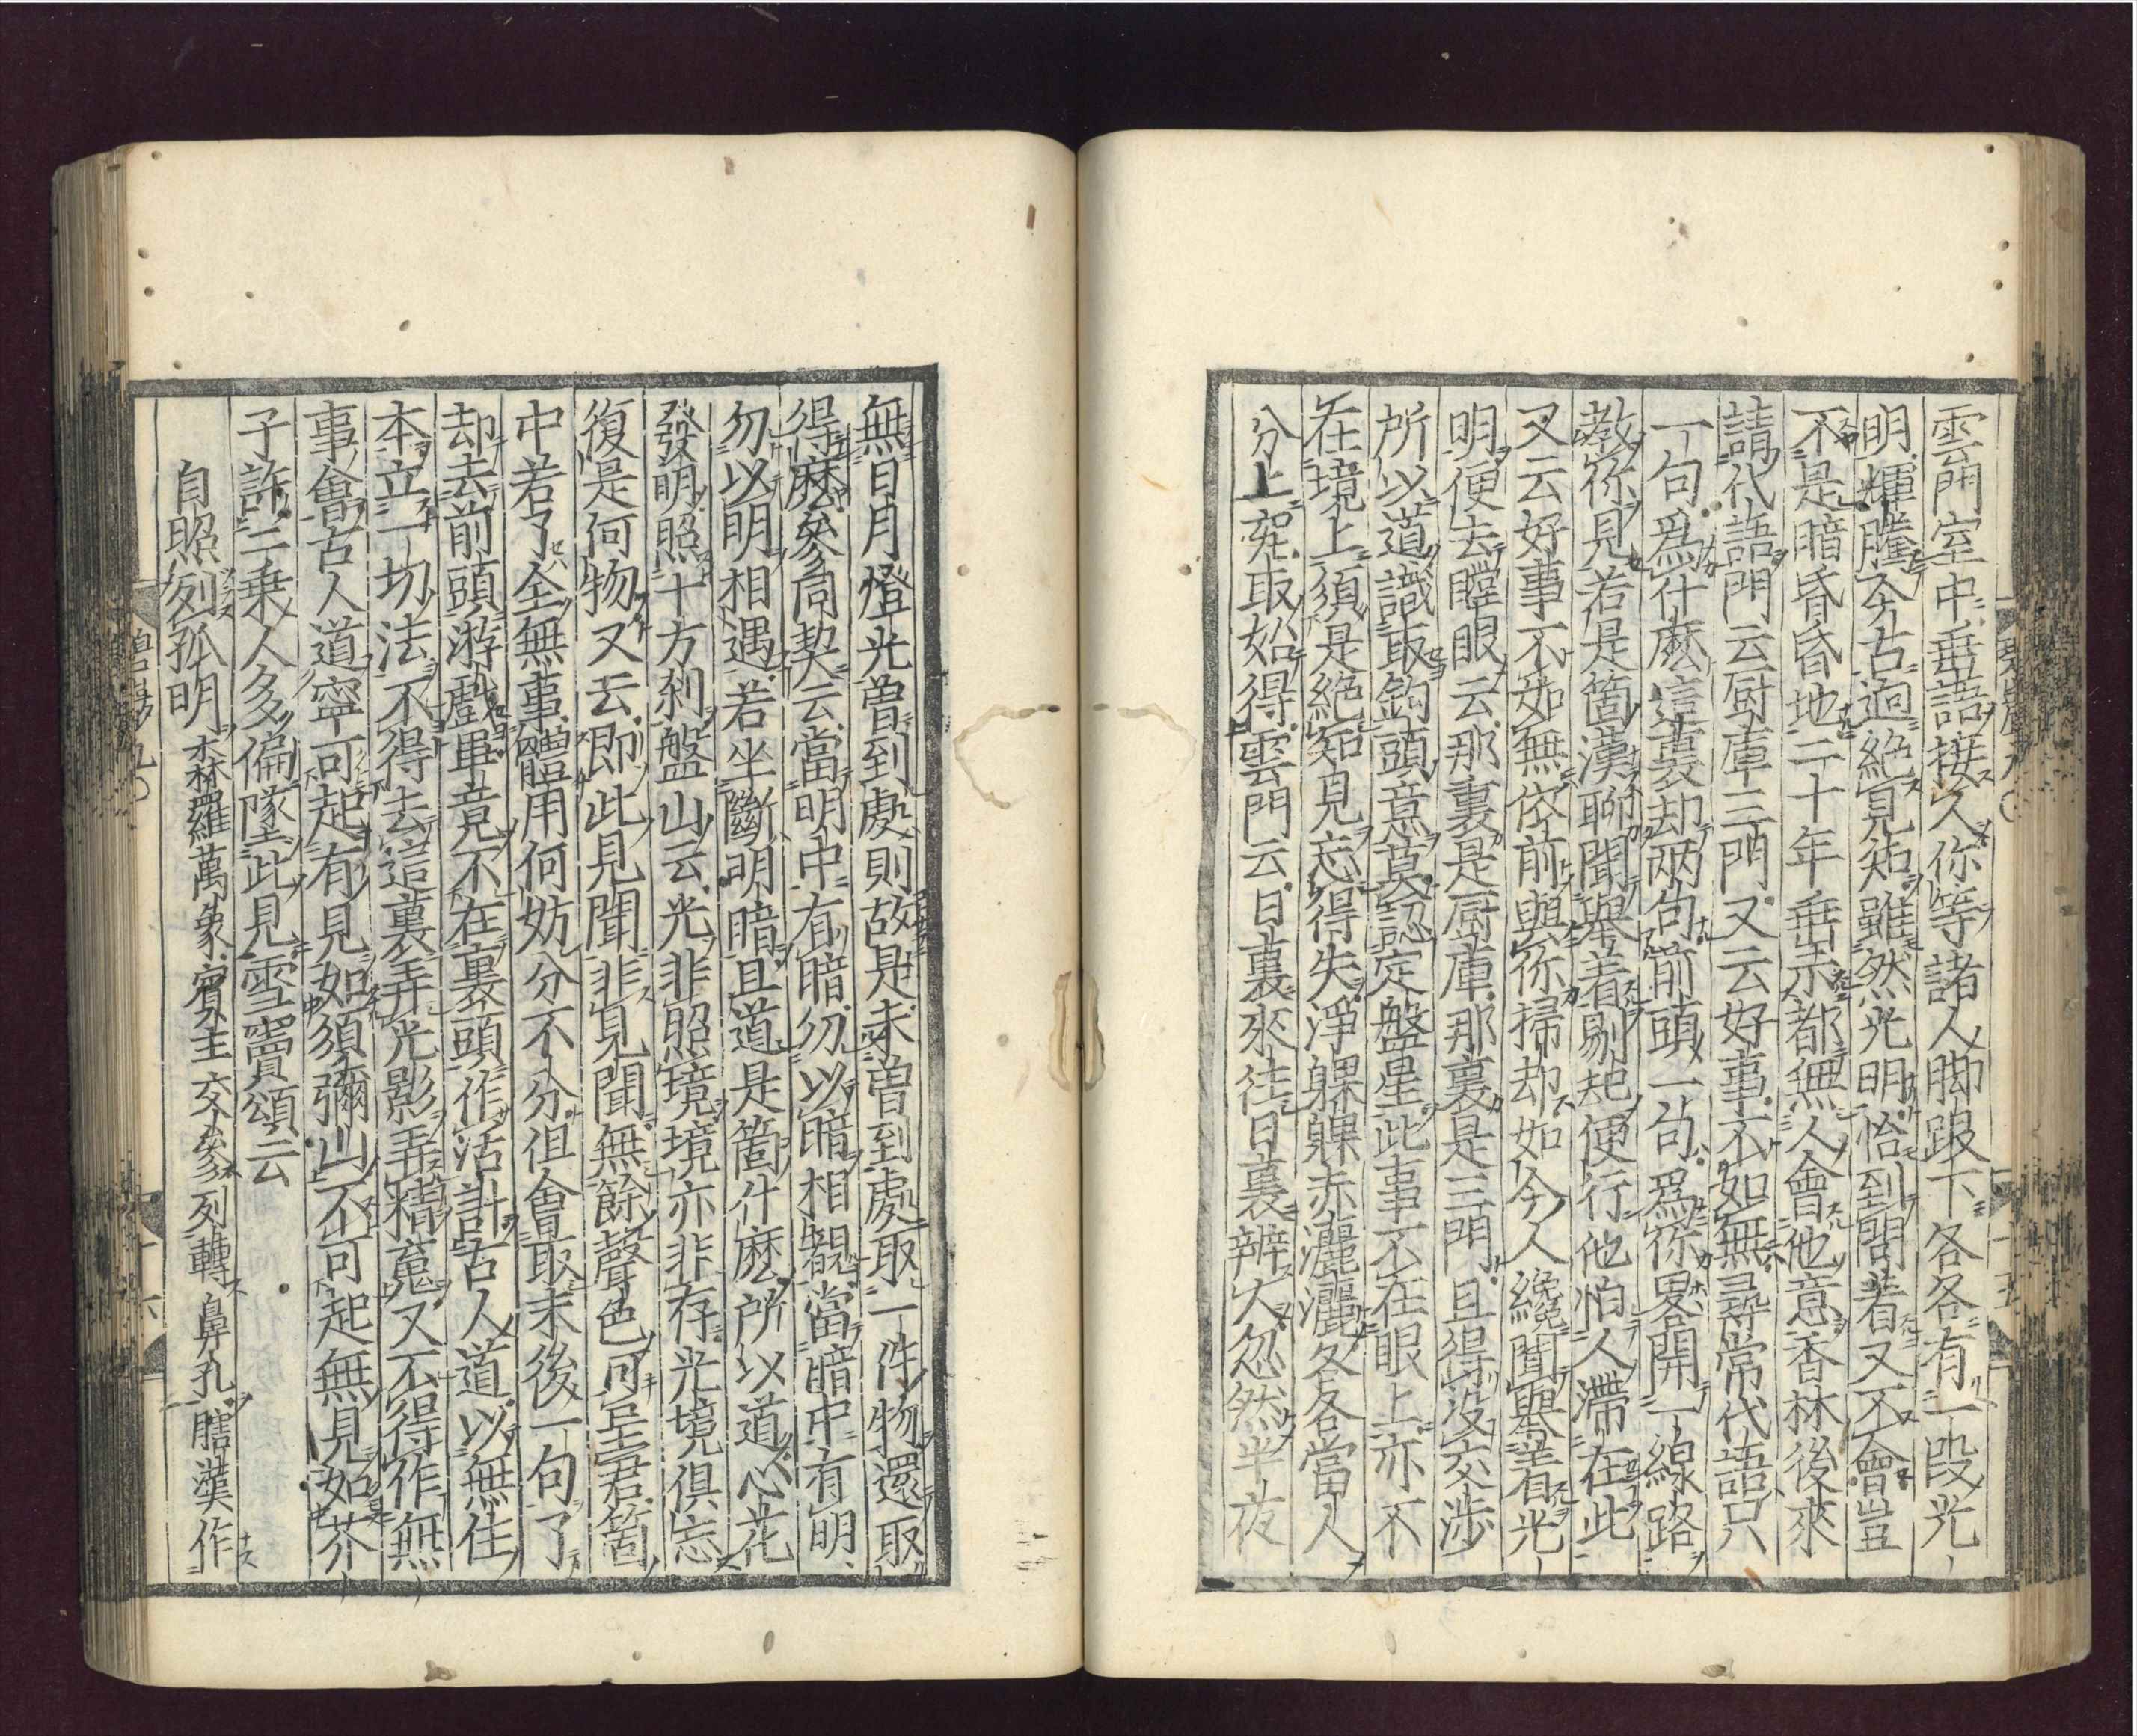 雲門室中垂語接人你等諸人脚跟下各各有一段光
明輝騰今古逈絶見知雖然光明恰到問着又不會豈
不是暗昏昏地二十年垂示都無人會他意香林後來
請代語門云厨庫三門又云好事不如無尋常代語只
一句爲什麽這裏却兩句前頭一句爲你畧開一線路
教你見若是箇漢聊聞擧着剔起便行他怕人滯在此
又云好事不如無依前與你掃却如今人纔聞擧着光
明便去瞠眼云那裏是厨庫那裏是三門且得沒交渉
所以道識取鈎頭意莫認定盤星此事不在眼上亦不
在境上須是絶知見忘得失淨躶躶赤灑灑各各當人
分上究取始得雲門云日裏來往日裏辨人忽然半夜
無日月燈光曽到處則故是未曽到處取一件物還取
得麽參同契云當明中有暗勿以暗相覩當暗中有明
勿以明相遇若坐斷明暗且道是箇什麽所以道心花
發明照十方刹盤山云光非照境境亦非存光境俱忘
復是何物又云即此見聞非見聞無餘聲色可呈君箇
中若了全無事體用何妨分不分但會取末後一句了
却去前頭游戲畢竟不在裏頭作活計古人道以無住
本立一切法不得去這裏弄光影弄精䰟又不得作無
事會古人道寧可起有見如須彌山不可起無見如芥
子許二乗人多偏墜此見雪竇頌云
自照列孤明 森羅萬象賓主交參列轉鼻孔瞎漢作